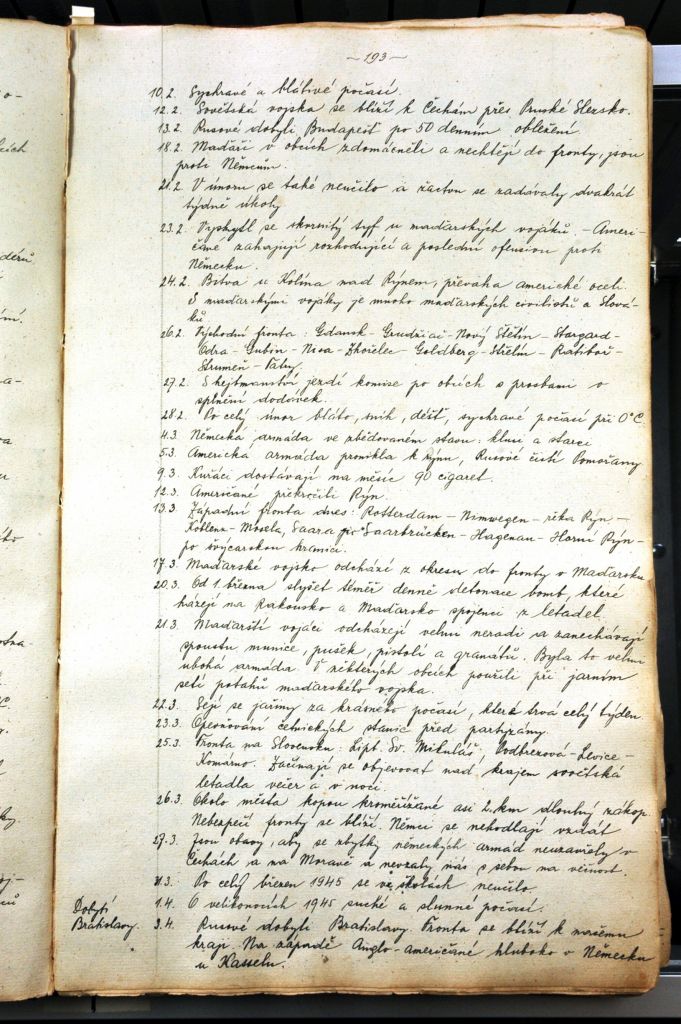 — 193 —
10.2. Sychravé a blátivé počasí.
12.2. Sovětská vojska se blíží k Čechám přes Pruské Slezsko.
13.2. Rusové dobyli Budapešť po 50 denním obležení.
18.2. Maďaři v obcích zdomácněli a nechtějí do fronty, jsou
proti Němcům.
21.2. V únoru se také neučilo a žactvu se zadávaly dvakrát
týdně úkoly
23.2. Vyskytl se skvrnitý tyf u maďarských vojáků. – Ameri-
čané zahajují rozhodující a poslední ofensivu proti
Německu.
24.2. Bitva u Kolína nad Rýnem, převaha americké oceli.
S maďarskými vojáky je mnoho maďarských civilistů a Slová-
ků
26.2. Východní fronta: Gdansk – Grudziaž – Nový Štětín – Stargard –
Odra – Gubin – Nisa – Zhořelec – Goldberg – Střelín – Ratiboř –
Strumeň – Tatry.
27.2. S hejtmanství jezdí komise po obcích s prosbami o
splnění dodávek.
28.2. Po celý únor bláto, sníh, déšť, sychravé počasí při 0°C.
4.3. Německá armáda ve zbědovaném stavu: kluci a starci
5.3. Americká armáda pronikla k rýnu, Rusové čistí Pomořany
9.3. Kuřáci dostávají na měsíc 90 cigaret.
12.3. Američané překročili Rýn.
13.3. Západní fronta dnes: Rotterdam – Nimwegen – řeka Rýn –
Koblenz – Mosela, Saara po Saarbrücken – Hagenau – Horní Rýn –
po švýcarskou hranici.
17.3. Maďarské vojsko odchází z okresu do fronty v Maďarsku
20.3. Od 1. března slyšet téměř denně detonace bomb, které
házejí na Rakousko a Maďarsko spojenci z letadel.
21.3. Maďarští vojáci odcházejí velmi neradi a zanechávají
spoustu munice, pušek, pistolí a granátů. Byla to velmi
ubohá armáda. V některých obcích použili při jarním
setí potahů maďarského vojska.
22.3. Sejí se jařiny za krásného počasí, které trvá celý týden
23.3. Opevňování četnických stanic před partyzány.
25.3. Fronta na Slovensku: Lipt. Sv. Mikuláš, Podbrezová – Levice –
Komárno. Začínají se objevovat nad krajem sovětská
letadla večer a v noci.
26.3. Okolo města kopou kroměřížané asi 2 km dlouhý zákop.
Nebezpečí fronty se blíží. Němci se nehodlají vzdát
27.3. Jsou obavy, aby se zbytky německých armád neuzavřely v
Čechách a na Moravě a nevzaly nás s sebou na věčnost.
31.3. Po celý březen 1945 se ve školách neučilo.
1.4. O velikonocích 1945 suché a slunné počasí.
Dobytí
Bratislavy.
3.4. Rusové dobyli Bratislavy. Fronta se blíží k našemu
kraji. Na západě Anglo-američané hluboko v Německu
u Kasselu.